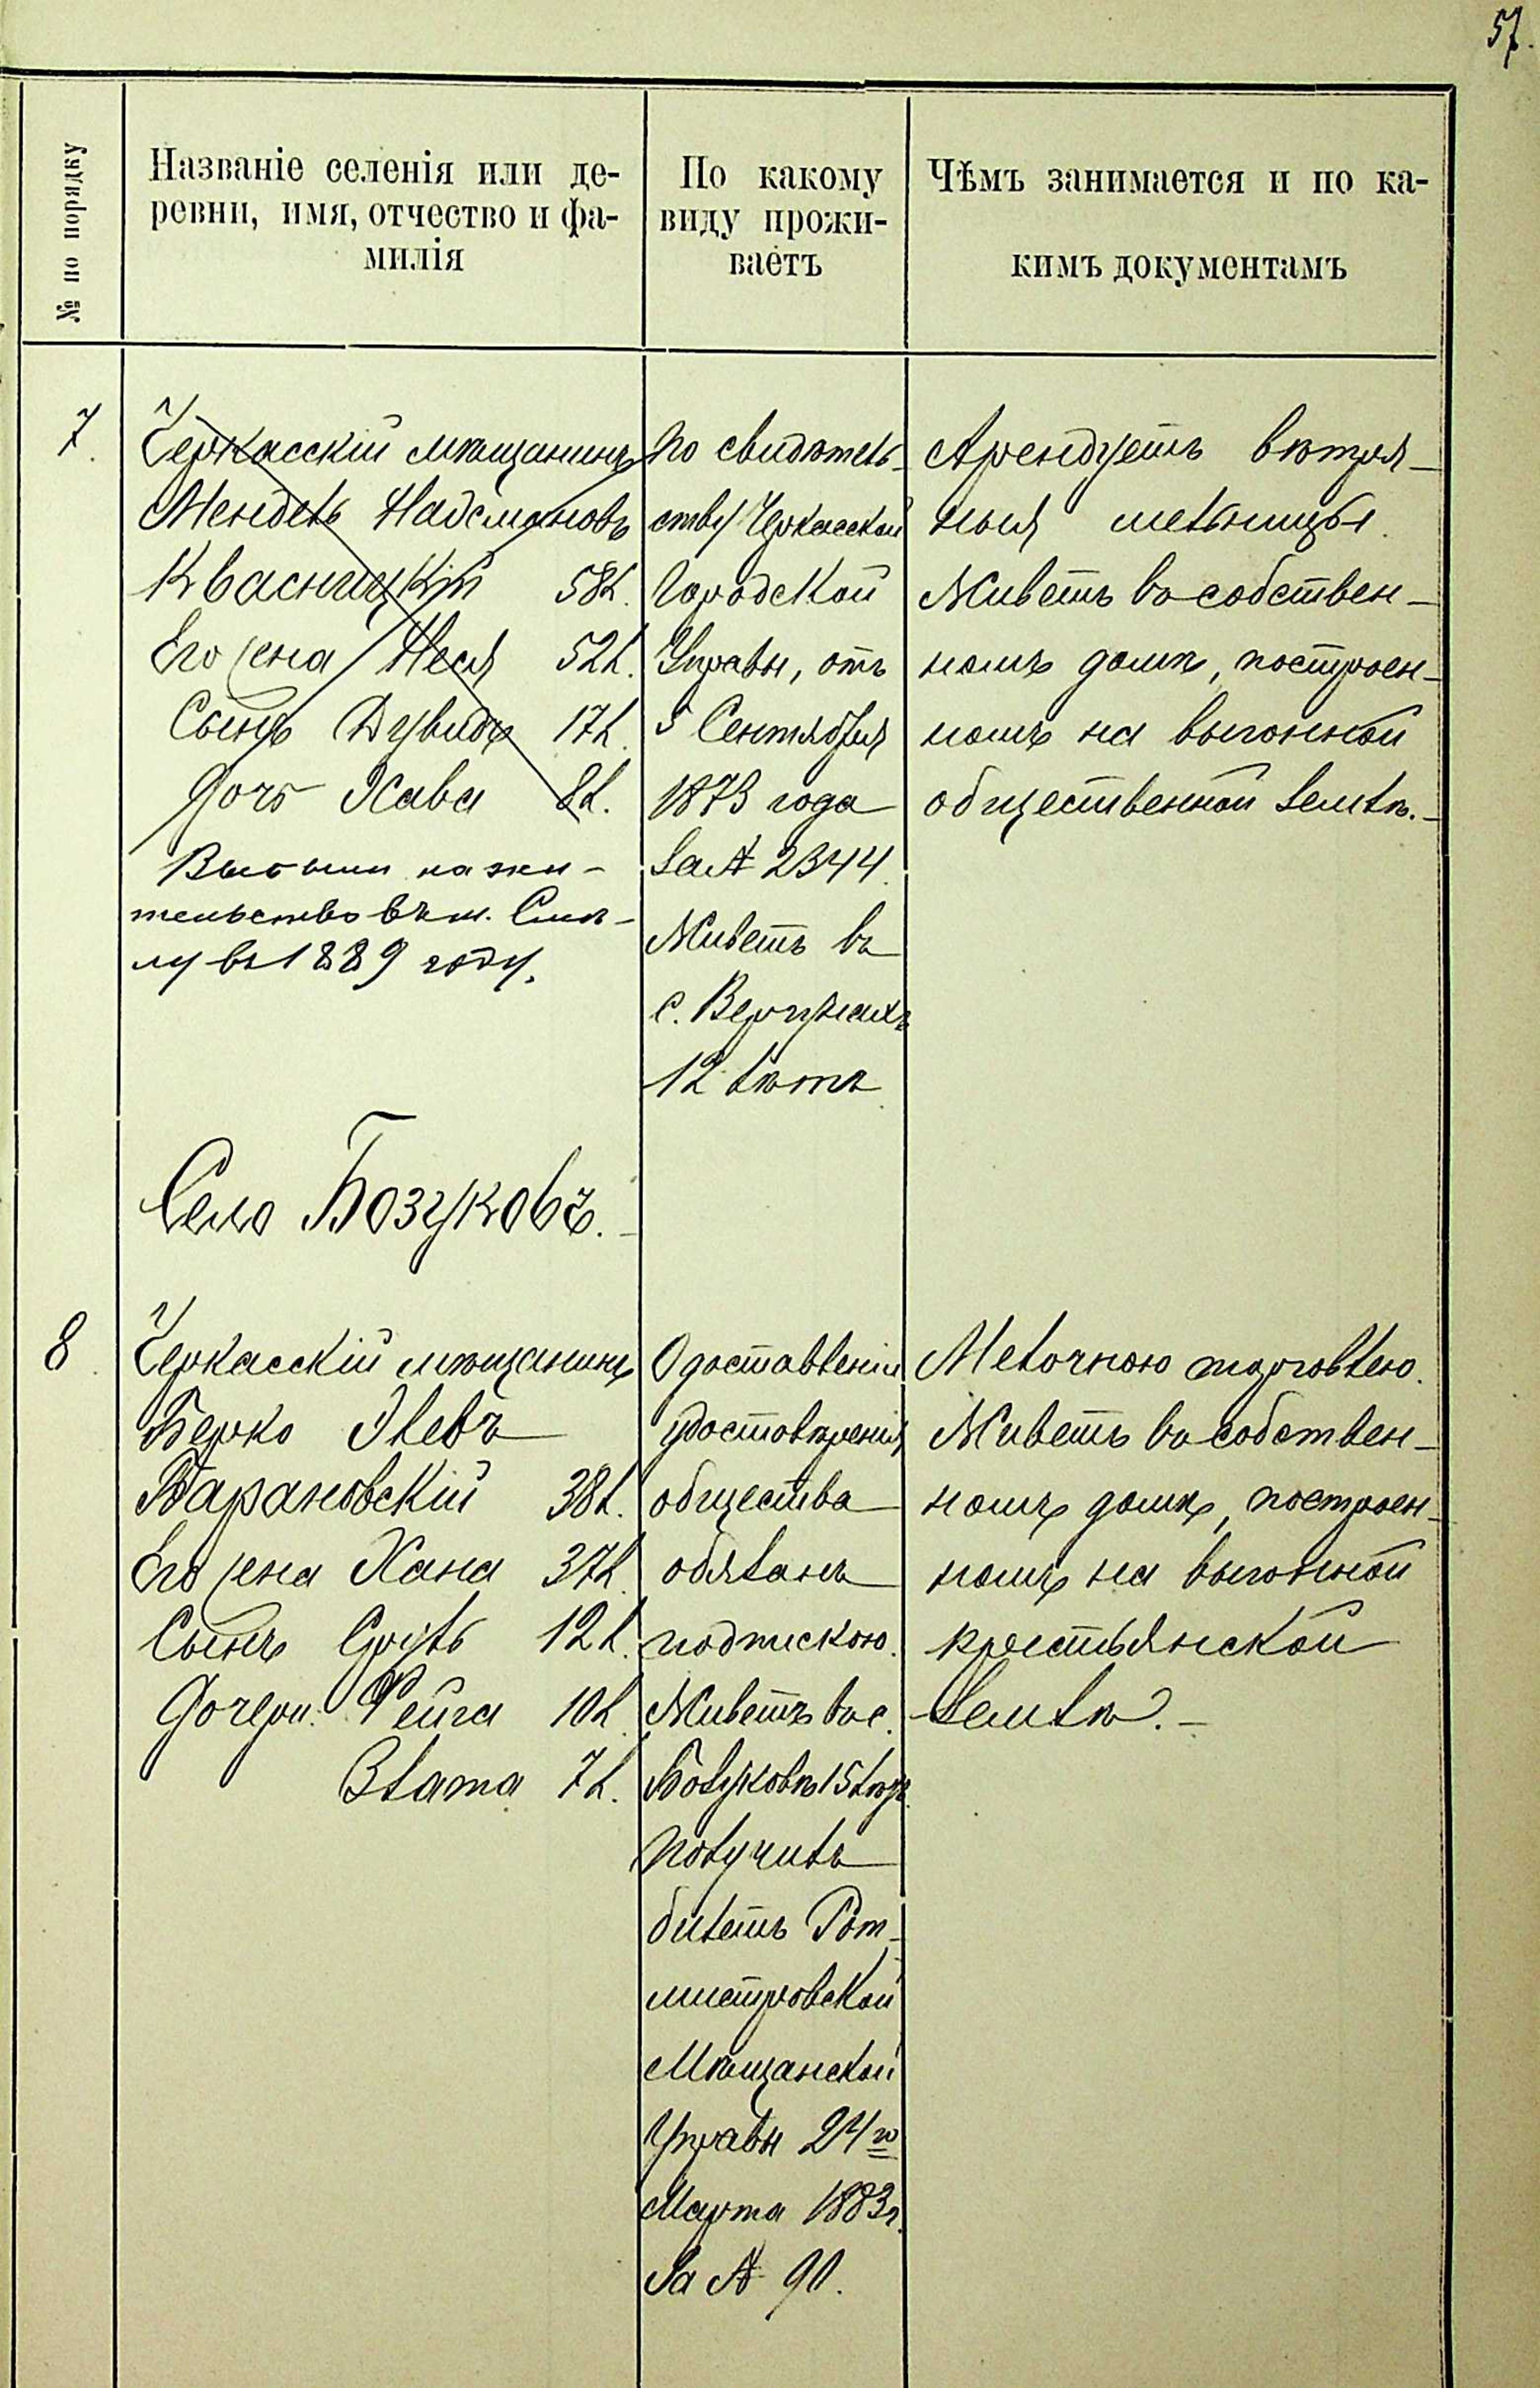 57.
№ по порядку
Названіе селенія или де-
ревни, имя, отчество и фа-
милія
По какому
виду прожи-
ваетъ
Чѣмъ занимается и по ка-
кимъ документамъ
7.
Черкасскій мѣщанинъ
Мендель
Квасницкій 58 л.
Его жена Неся 52 л.
Сынъ Дувидъ 17 л.
Дочь Хава 8 л.
Выбыли на жи-
тельство въ м. Смѣ-
лу въ 1889 году.
По свидѣтель-
ству Черкасской
Городской
Управы, отъ
5 Сентября
1873 года
за № 2344.
Живетъ въ
с. Вергунахъ
12 лѣтъ
Арендуетъ вѣтря-
ныя мельницы.
Живетъ въ собствен-
номъ домѣ, построен-
номъ на выгонной
общественной землѣ.-
Село Бозуковъ.-
8.
Черкасскій мѣщанинъ
Берко Элевъ
Тарановскій 38 л.
Его жена Хана 37 л.
Сынъ Сруль 12 л.
Дочери: Фейга 10 л.
Злата 7 л.
О доставленіи
удостовѣренія
общества
обязанъ
подпискою.
Живетъ въ с.
Бозуковѣ 15 лѣтъ.
Получилъ
билетъ Рот-
мистровской
Мѣщанской
Управы 24го
Марта 1883 г.
за № 90.
Мелочною торговлею.
Живетъ въ собствен-
номъ домѣ, построен-
номъ на выгонной
крестьянской
землѣ.-